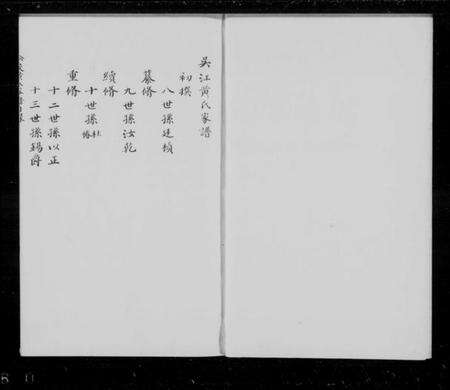 吳江黃氏家譜
初撰
八世孫廷楨
纂脩
九世孫汝乾
續脩
十世孫 杜 脩
重脩
十二世孫以正
十三世孫錫爵